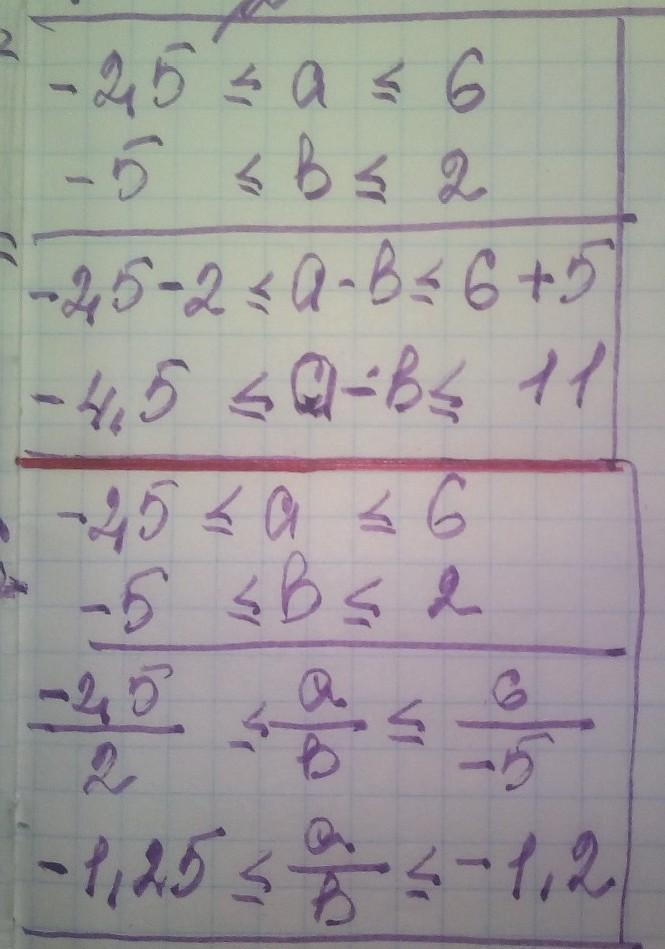 -2,5 ≤ a ≤ 6
-5 ≤ b ≤ 2
-2,5-2 ≤ a-b ≤ 6+5
-4,5 ≤ a-b ≤ 11
-2,5 ≤ a ≤ 6
-5 ≤ b ≤ 2
-2,5/2 ≤ a/b ≤ 6/-5
-1,25 ≤ a/b ≤ -1,2